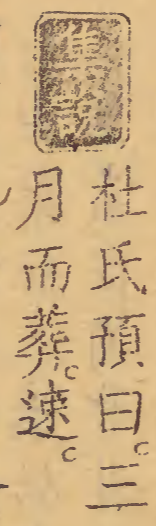 杜氏預曰。三
月而葬。速。